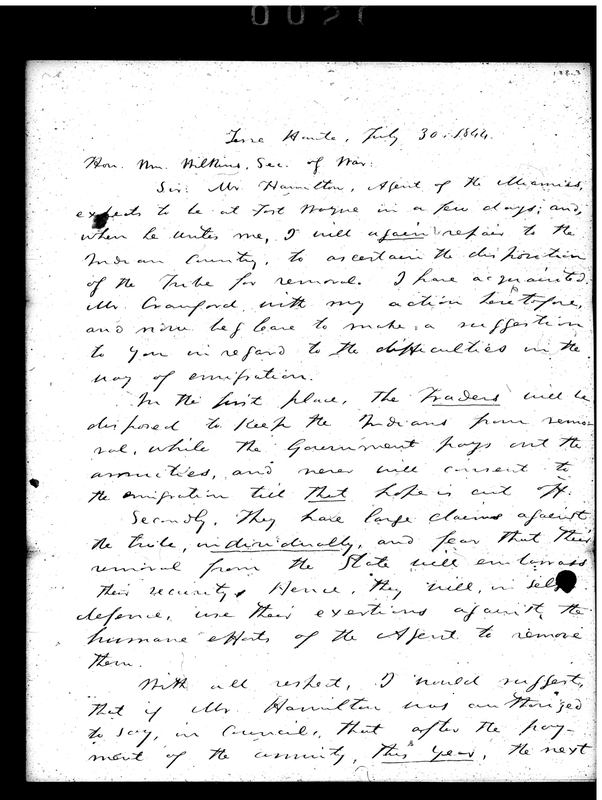 Terre Haute, July 30. 1844.
Hon. Wm. Wilkins, Sec. of War.
Sir: Mr Hamilton, Agent of the Miamies,
expects to be at Fort Wayne in a few days; and,
when he writes me, I will again repair to the
Indian Country, to ascertain the disposition
of the Tribe for removal. I have acquainted
Mr. Crawford with my action heretofore,
and now beg leave to make a suggestion
to you in regard to the difficulties in the
way of emigration.
In the first place, the Traders will be
disposed to keep the Indians from remo-
val, while the Government pays out the
annuities, and never will consent to
the emigration till that hope is cut off.
Secondly, They have large claims against
the tribe, individually, and fear that their
removal from the State will embarrass
their security. Hence, they will, in self
defence, use their exertions against the
humane efforts of the Agent to remove
them.
With all respect, I would suggest,
that if Mr. Hamilton was authorized
to say, in Council, that after the pay-
ment of the annuity, this year, the next